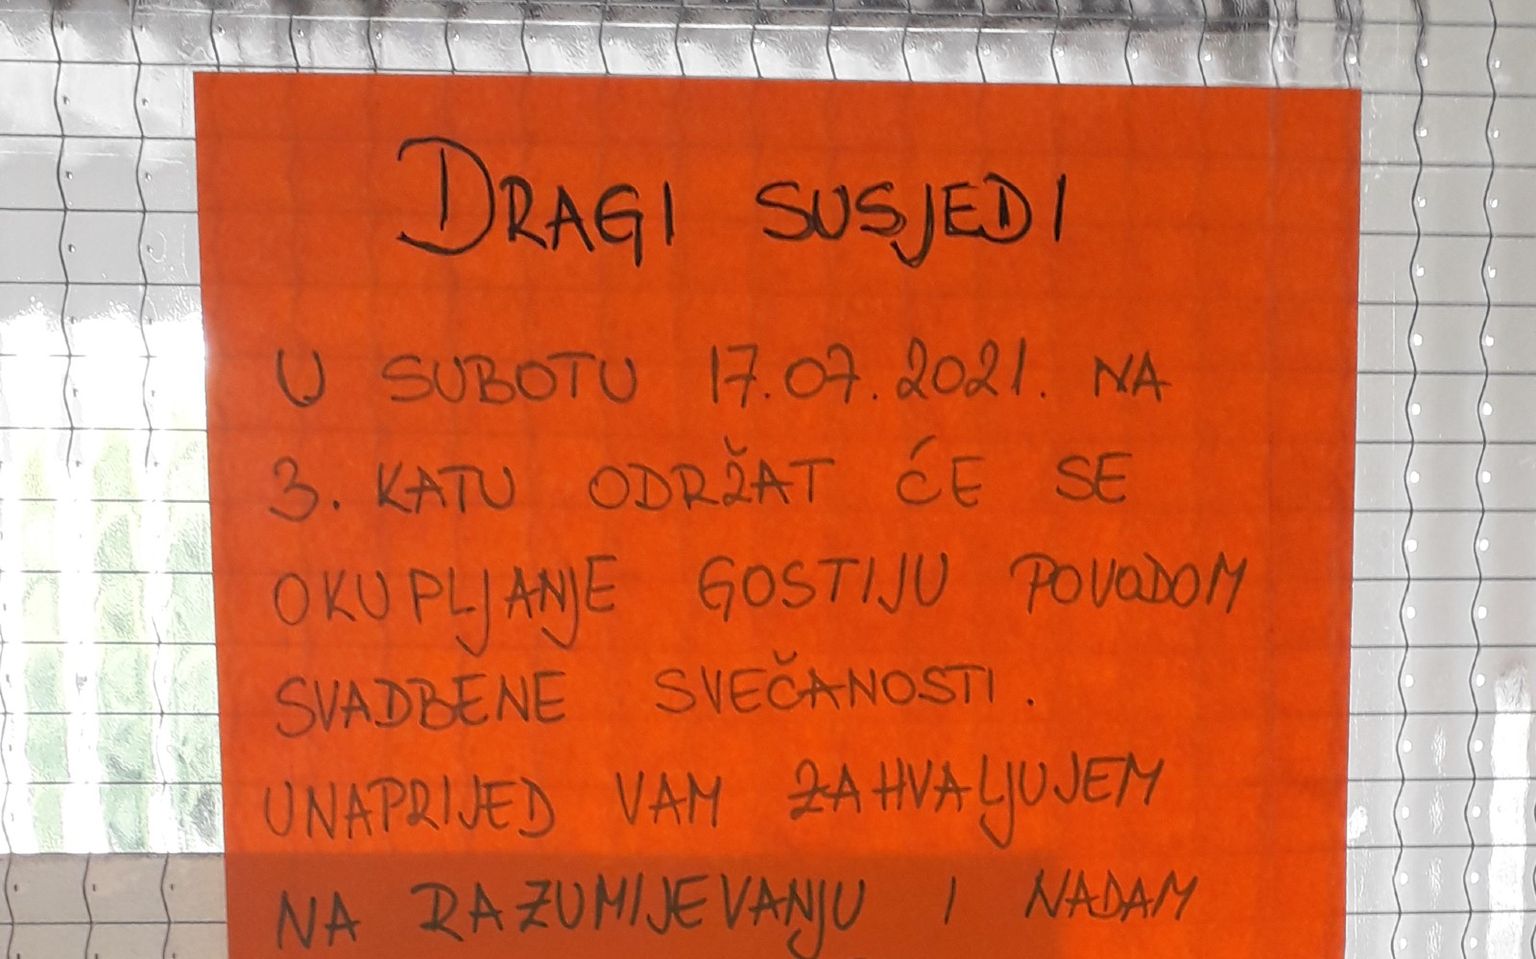 DRAGI SUSJEDI
U SUBOTU 17.07.2021. NA
3. KATU ODRŽAT ĆE SE
OKUPLJANJE GOSTIJU POVODOM
SVADBENE SVEČANOSTI.
UNAPRIJED VAM ZAHVALJUJEM
NA RAZUMIJEVANJU I NADAM